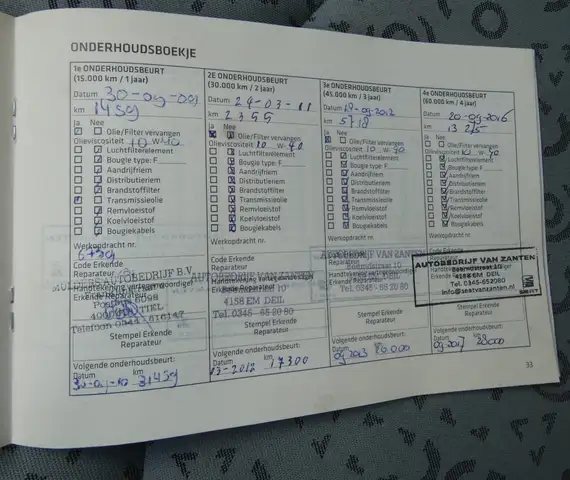 ONDERHOUDSBOEKJE
1e ONDERHOUDSBEURT
(15.000 km / 1 jaar)
Datum 30-09-09
km 1459
Ja Nee
Olie/Filter vervangen
Olieviscositeit 10 W 40
Luchtfilterelement
Bougie type: F
Aandrijfriem
Distributieriem
Brandstoffilter
Transmissieolie
Remvloeistof
Koelvloeistof
Bougiekabels
Werkopdracht nr.
Code Erkende
Reparateur
AUTOBEDRIJF B.V.
Stempel Erkende
Reparateur
Volgende onderhoudsbeurt:
Datum km
31459
2E ONDERHOUDSBEURT
(30.000 km / 2 jaar)
Datum 24-03-11
km 2399
Ja Nee
Olie/Filter vervangen
Olieviscositeit 10 W- 40
Luchtfilterelement
Bougie type: F
Aandrijfriem
Distributieriem
Brandstoffilter
Transmissieolie
Remvloeistof
Koelvloeistof
Bougiekabels
Werkopdracht nr.
AUTOBEDRIJF VAN ZANTEN
4158 EM DEIL
Tel. 0345 - 65 20 80
Stempel Erkende
Reparateur
Volgende onderhoudsbeurt:
Datum km
3-2012 17300
3e ONDERHOUDSBEURT
(45.000 km / 3 jaar)
Datum 19-09-2012
km 5718
Ja Nee
Olie/Filter vervangen
Olieviscositeit 10 W- 40
Luchtfilterelement
Bougie type: F
Aandrijfriem
Distributieriem
Brandstoffilter
Transmissieolie
Remvloeistof
Koelvloeistof
Bougiekabels
Werkopdracht nr.
AUTOBEDRIJF VAN ZANTEN
Beemdstraat 10
Tel. 0345 - 65 20 80
Stempel Erkende
Reparateur
Volgende onderhoudsbeurt:
Datum km
09-2013 20.000
4e ONDERHOUDSBEURT
(60.000 km / 4 jaar)
Datum 20-09-2016
km 13 215
Ja Nee
Olie/Filter vervangen
Olieviscositeit 10 W- 40
Luchtfilterelement
Bougie type: F
Aandrijfriem
Distributieriem
Brandstoffilter
Transmissieolie
Remvloeistof
Koelvloeistof
Bougiekabels
Werkopdracht nr.
AUTOBEDRIJF VAN ZANTEN
Beemdstraat 10
4158 EM DEIL
Tel. 0345-652080
info@seatvanzanten.nl
Stempel Erkende
Reparateur
Volgende onderhoudsbeurt:
Datum km
09-2017 28000
33